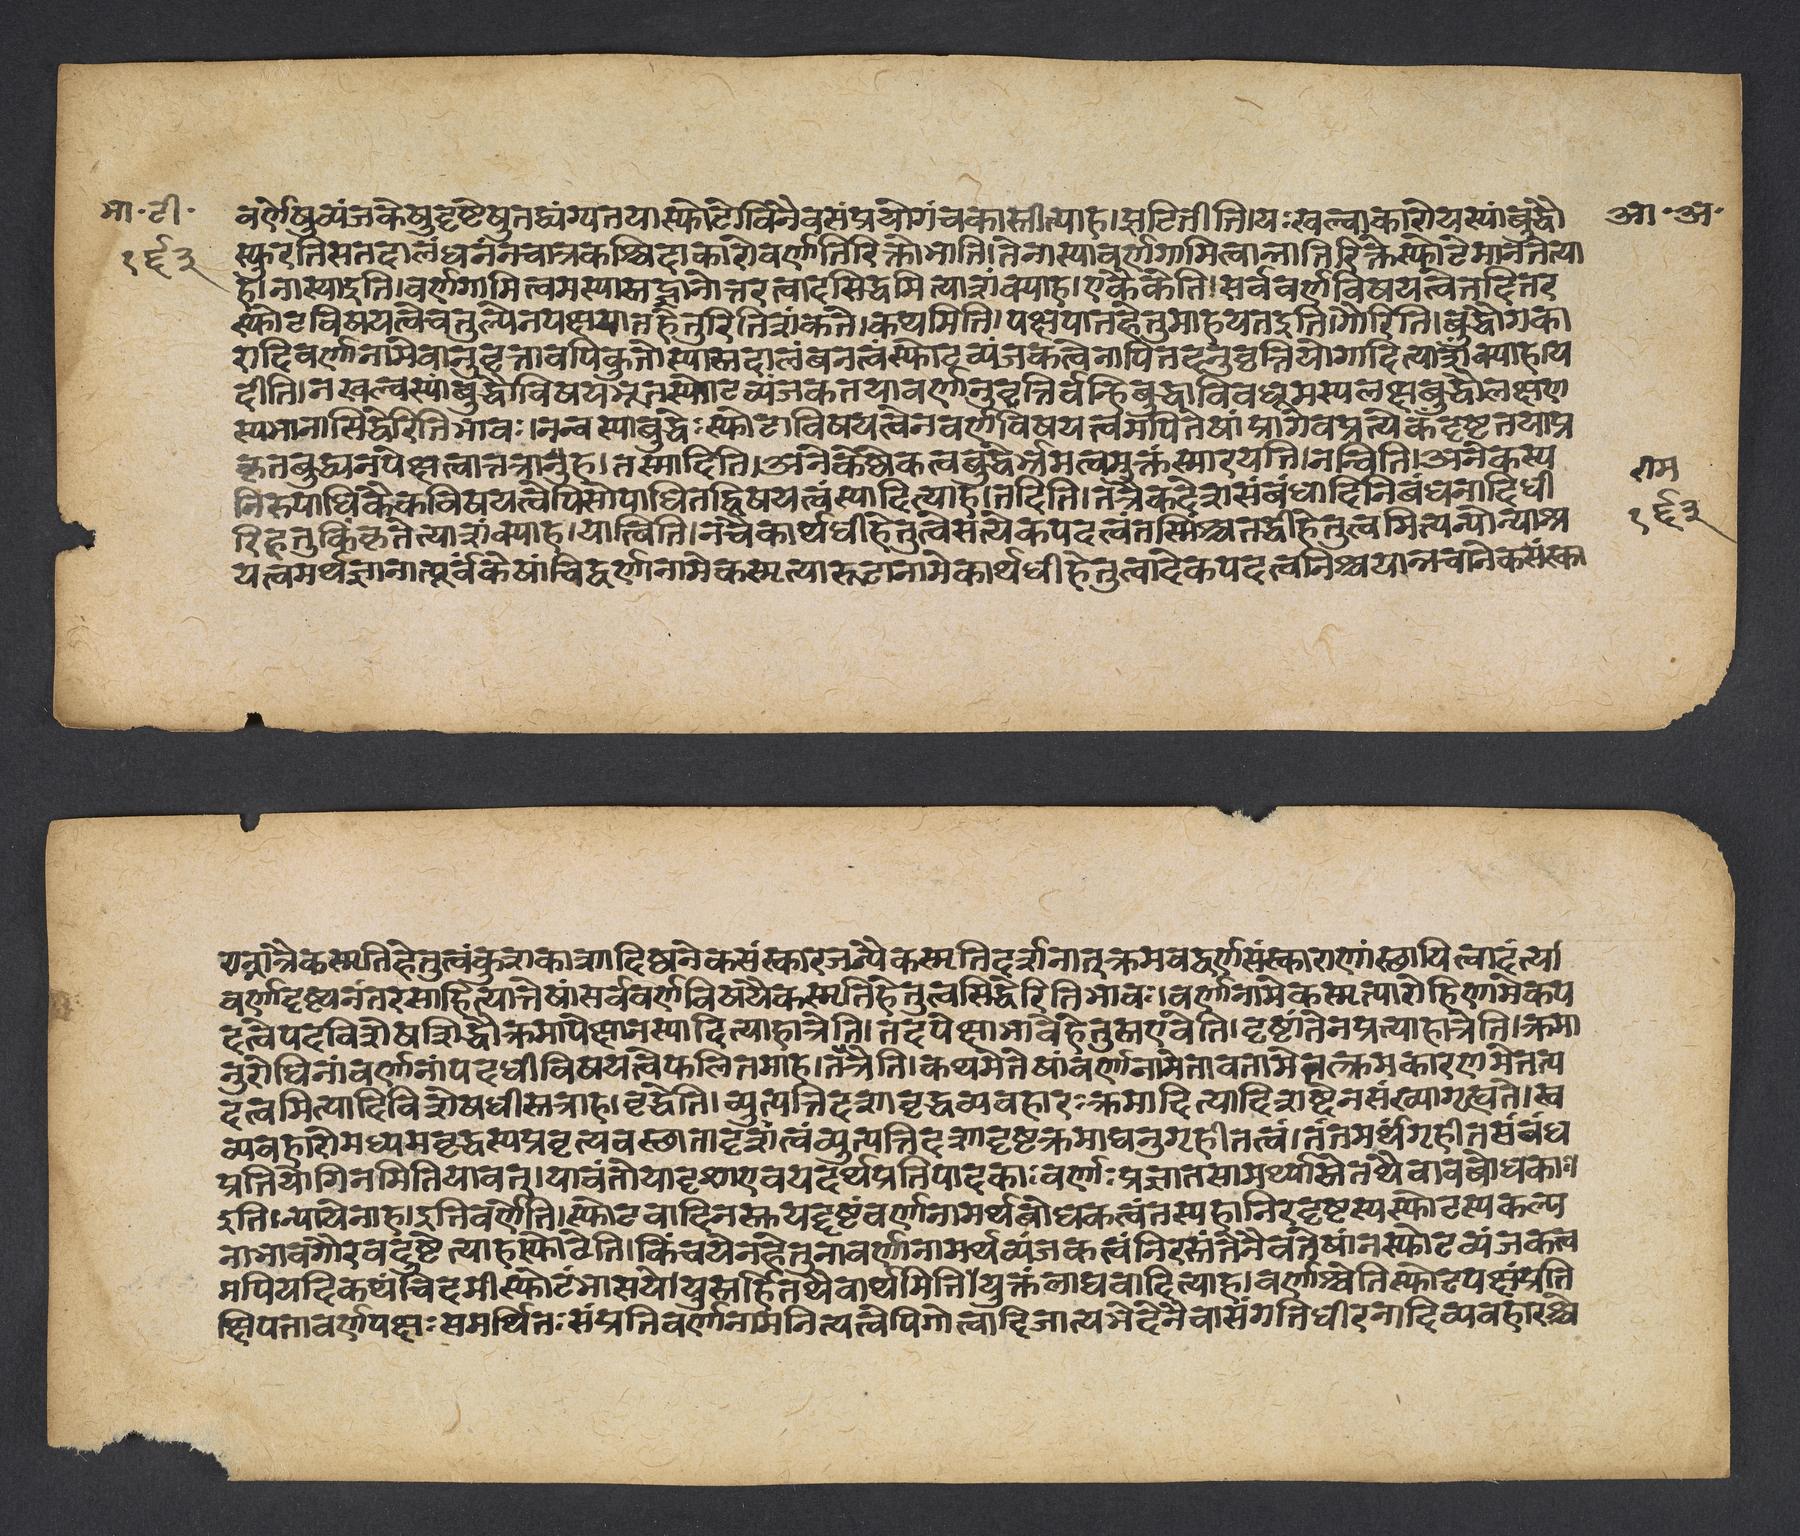 भा॰टी॰
१६३
आ॰अ॰
वर्णेषुव्यंजकेषुदृष्टेषुतद्यंग्यतयास्फोटोविनैवसंप्रयोगंचकास्तीत्याह। झटितीति। यःखल्वाकारोयस्यांबुद्धौ
स्फुरतिसतदालंबनंनचात्रकश्चिदाकारोवर्णातिरिक्तोभाति। तेनास्यावर्णगामित्वान्नातिरिक्तेस्फोटेमानतेत्या
ह। नास्याइति। वर्णगामित्वमस्यास्तद्भानोत्तरत्वादसिद्धमित्याशंक्याह। एकैकेति। सर्ववर्णविषयत्वेतदितर
स्फोटविषयत्वेचतुल्येनपक्षपातहेतुरितिशंकते। कथमिति। पक्षपातहेतुमाहयतइति। गौरिति। बुद्धौगका
रादिवर्णानामेवानुवृत्तावपिकुतोस्यास्तदालंबनत्वंस्फोटव्यंजकत्वेनापितदनुवृत्तियोगादित्याशंक्याह। य
दीति। नखल्वस्यांबुद्धौविषयभूतस्फोटव्यंजकतयावर्णानुवृत्तिर्वन्हिबुद्धाविवधूमस्यलक्षबुद्धौलक्षण
स्यभानासिद्धेरितिभावः। नन्वस्याबुद्धेःस्फोटाविषयत्वेनवर्णविषयत्वमपितेषांप्रागेवप्रत्येकंदृष्टतयाप्र
कृतबुद्ध्यनपेक्षत्वात्तत्राह। तस्मादिति। अनेकेष्वेकत्वबुद्धेर्भ्रमत्वमुक्तंस्मारयति। नन्विति। अनेकस्य
निरुपाधिकैकविषयत्वेपिसोपाधितद्विषयत्वंस्यादित्याह। तदिति। तत्रैकदेशसंबंधादिनिबंधनादिधी
रिहतुकिंकृतेत्याशंक्याह। यात्विति। नचैकार्थधीहेतुत्वेसत्येकपदत्वंतस्मिंश्चतद्धीहेतुत्वमित्यन्योन्याश्र
यत्वमर्थज्ञानात्पूर्वंकेषांचिद्वर्णानामेकस्मृत्यारूढानामेकार्थधीहेतुत्वादेकपदत्वनिश्चयान्नचानेकसंस्का
राम
१६३
राणांनैकस्मृतिहेतुत्वंकुशकाशादिष्वनेकसंस्कारजन्यैकस्मृतिदर्शनात्क्रमवद्वर्णसंस्काराणांस्छायित्वादंत्य
वर्णदृष्ट्यनंतरसाहित्यात्तेषांसर्ववर्णविषयैकस्मृतिहेतुत्वसिद्धेरितिभावः। वर्णानामेकस्मृत्यारोहिणामेकप
दत्वेपदविशेषशिद्धौक्रमापेक्षानस्यादित्याहात्रेति। तदपेक्षाभावेहेतुस्तएवेति। दृष्टांतेनप्रत्याहात्रेति। क्रमा
नुरोधिनांवर्णानांपदधीविषयत्वेफलितमाह। तत्रेति। कथमेतेषांवर्णानामेतावतामेतत्क्रमकारणमेतत्प
दत्वमित्यादिविशेषधीस्तत्राह। वृद्धेति। व्युत्पत्तिदशावृद्धव्यवहारःक्रमादित्यादिशब्देनसंख्यागृह्यते। स्व
व्यवहारोमध्यमवृद्धस्यप्रवृत्यवस्छातादृशंत्वंव्युत्पत्तिदशादृष्टक्रमाद्यनुगृहीतत्वं। तंतमर्थंगृहीतसंबंध
प्रतियोगिनमितियावत्। यावंतोयादृशाएवयदर्थप्रतिपादकाःवर्णाःप्रज्ञातसामर्थ्यास्तेतथैवावबोधका
इति। न्यायेनाह। इतिवर्णेति। स्फोटवादिनस्तुयद्दृष्टंवर्णानामर्थबोधकत्वंतस्यहानिरदृष्टस्यस्फोटस्यकल्प
नाभावंगौरवदुष्टेत्याहस्फोटेति। किंचयेनहेतुनावर्णानामर्थव्यंजकत्वंनिरस्तंतेनैवंतेषांनस्फोटव्यंजकत्व
मपियदिकथंचिदमीस्फोटंभासयेयुस्तर्हितथैवार्थमिति। युक्तंलाघवादित्याह। वर्णाश्चेतिस्फोटपक्षंप्रति
क्षिपतावर्णपक्षःसमर्थितःसंप्रतिवर्णानामनित्यत्वेपिगोत्वादिजात्यभेदेनैवासंगतिधीरनादिव्यवहारश्चे